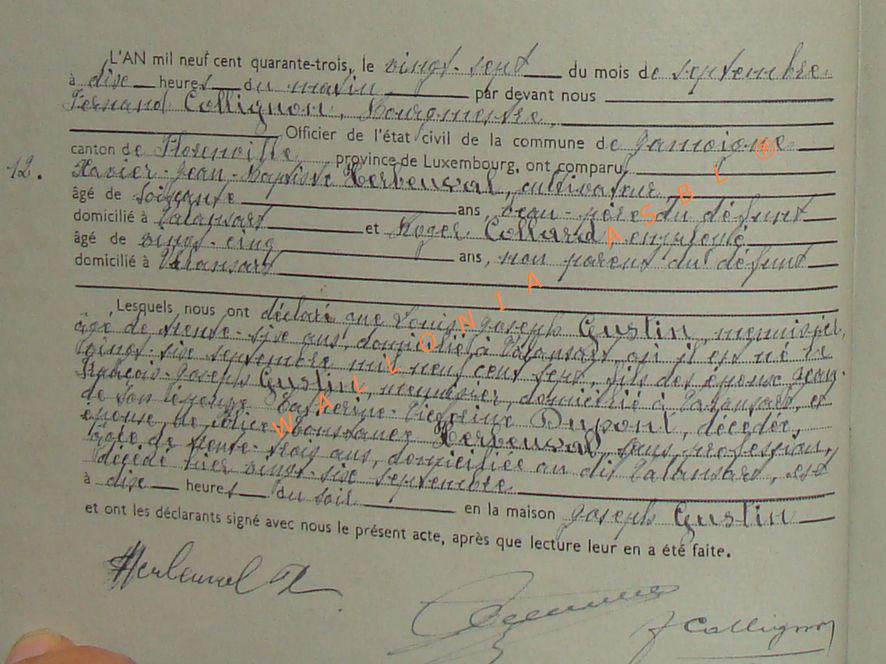 L'AN mil neuf cent quarante-trois, le vingt-sept du mois de septembre
à dise heures du matin par devant nous
Fernand Collignon, Bourgmestre,
Officier de l'état civil de la commune de Jamoigne
canton de Florenville, province de Luxembourg, ont comparu
12. Xavier-Jean-Baptiste Herbeuval, cultivateur
âgé de soisante ans, beau-père du défunt
domicilié à Valansart et Roger Collard employé
âgé de vingt-cinq ans, non parent du défunt
domicilié à Valansart
Lesquels nous ont déclaré que Louis-Joseph Gustin, menuisier,
âgé de trente-sise ans, domicilié à Valansart, où il est né le
vingt-sise septembre mil neuf cent sept, fils des épouse Jean-
François-Joseph Gustin, menuisier, domicilié à Valansart, et
de son épouse Catherine- Dupont, décédée,
épouse de Constance Herbeuval, sans profession,
âgée de trente-trois ans, domiciliée au dit Valansart, est
décédé hier vingt-sise septembre
à dise heures du soir en la maison Joseph Gustin
et ont les déclarants signé avec nous le présent acte, après que lecture leur en a été faite.
Herbeuval
J Collignon
WALLONIA ASBL ®